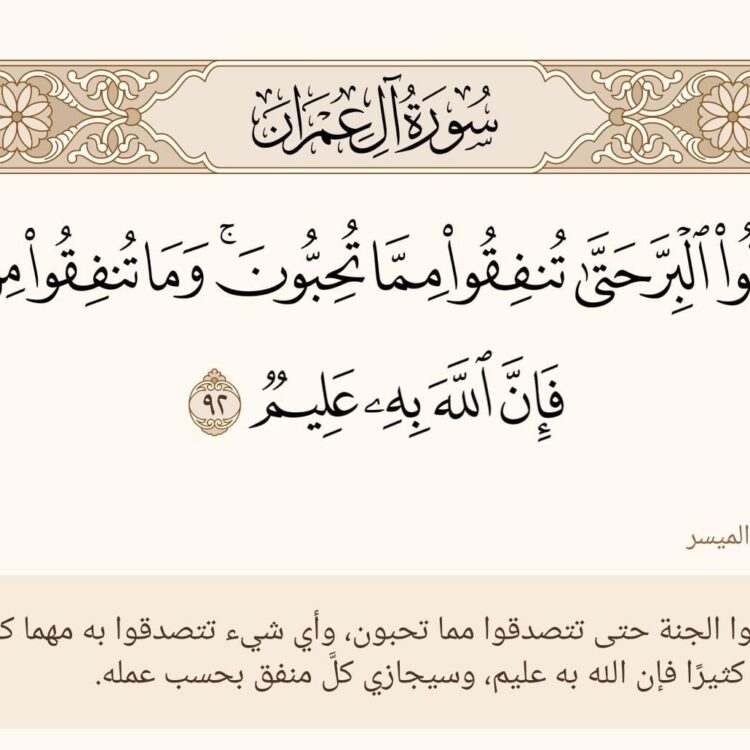 سُورَةُ آلِ عِمْرَانَ
ٱلۡبِرَّ حَتَّىٰ تُنفِقُواْ مِمَّا تُحِبُّونَۚ وَمَا تُنفِقُواْ
فَإِنَّ ٱللَّهَ بِهِۦ عَلِيمٞ ٩٢
الميسر
وا الجنة حتى تتصدقوا مما تحبون، وأي شيء تتصدقوا به مهما
كثيرًا فإن الله به عليم، وسيجازي كلَّ منفق بحسب عمله.